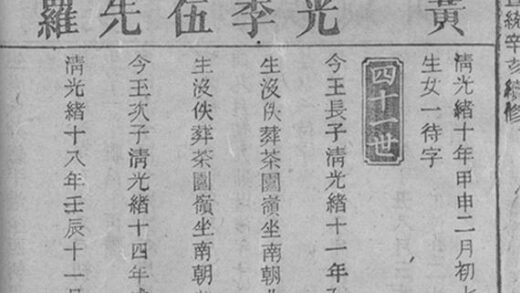 統辛亥續修
黃光李伍先羅
清光緒十年甲申二月初七
生女一待字
四十一世
今王長子清光緒十一年
生沒佚葬茶園嶺坐南朝北
生沒佚葬茶園嶺坐南朝
今王次子清光緒十四年
清光緒十八年壬辰十一月